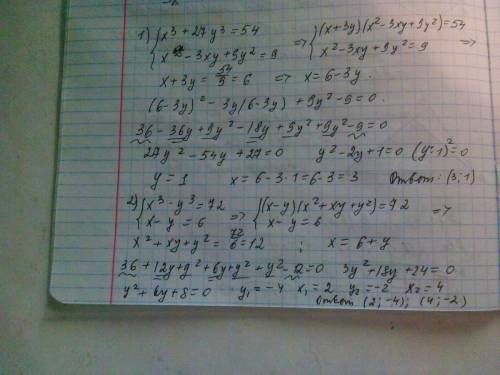 1) { x³ + 27y³ = 54 => { (x+3y)(x²-3xy+9y²)=54
x² - 3xy + 9y² = 9 x²-3xy+9y² = 9 =>
x + 3y = 54/9 = 6 => x = 6-3y.
(6-3y)² - 3y(6-3y) + 9y² - 9 = 0.
36 - 36y + 9y² - 18y + 9y² + 9y² - 9 = 0
27y² - 54y + 27 = 0 y² - 2y + 1 = 0 (y-1)² = 0
y = 1 x = 6 - 3·1 = 6-3 = 3 Ответ: (3; 1)
2) { x³ - y³ = 72 => { (x-y)(x²+xy+y²) = 72 =>
x - y = 6 x - y = 6
x² + xy + y² = 72/6 = 12 ; x = 6 + y
36 + 12y + y² + 6y + y² + y² - 12 = 0 3y² + 18y + 24 = 0
y² + 6y + 8 = 0 y₁ = -4 x₁ = 2 y₂ = -2 x₂ = 4
Ответ (2; -4); (4; -2)